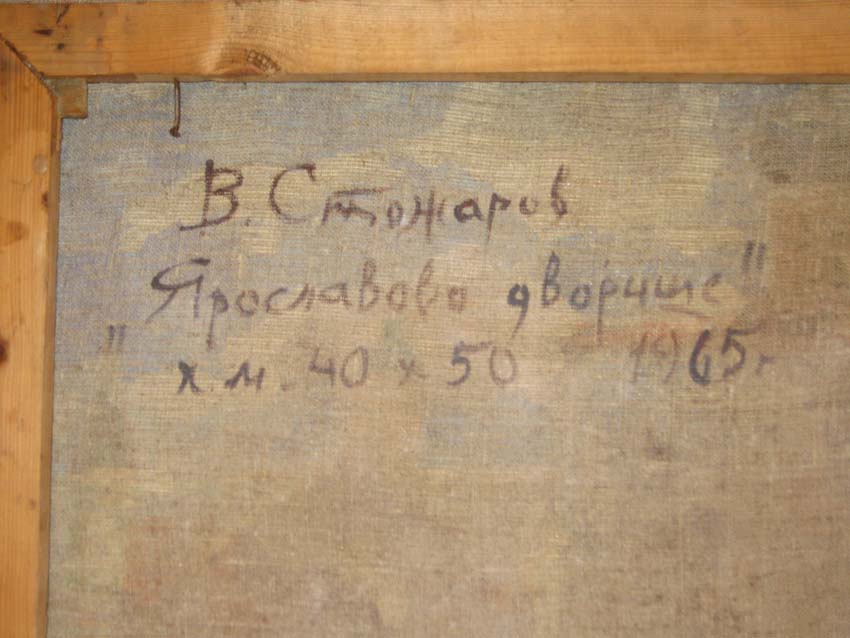 В. Стожаров
"Ярославово дворище"
х.м. 40 х 50 1965г